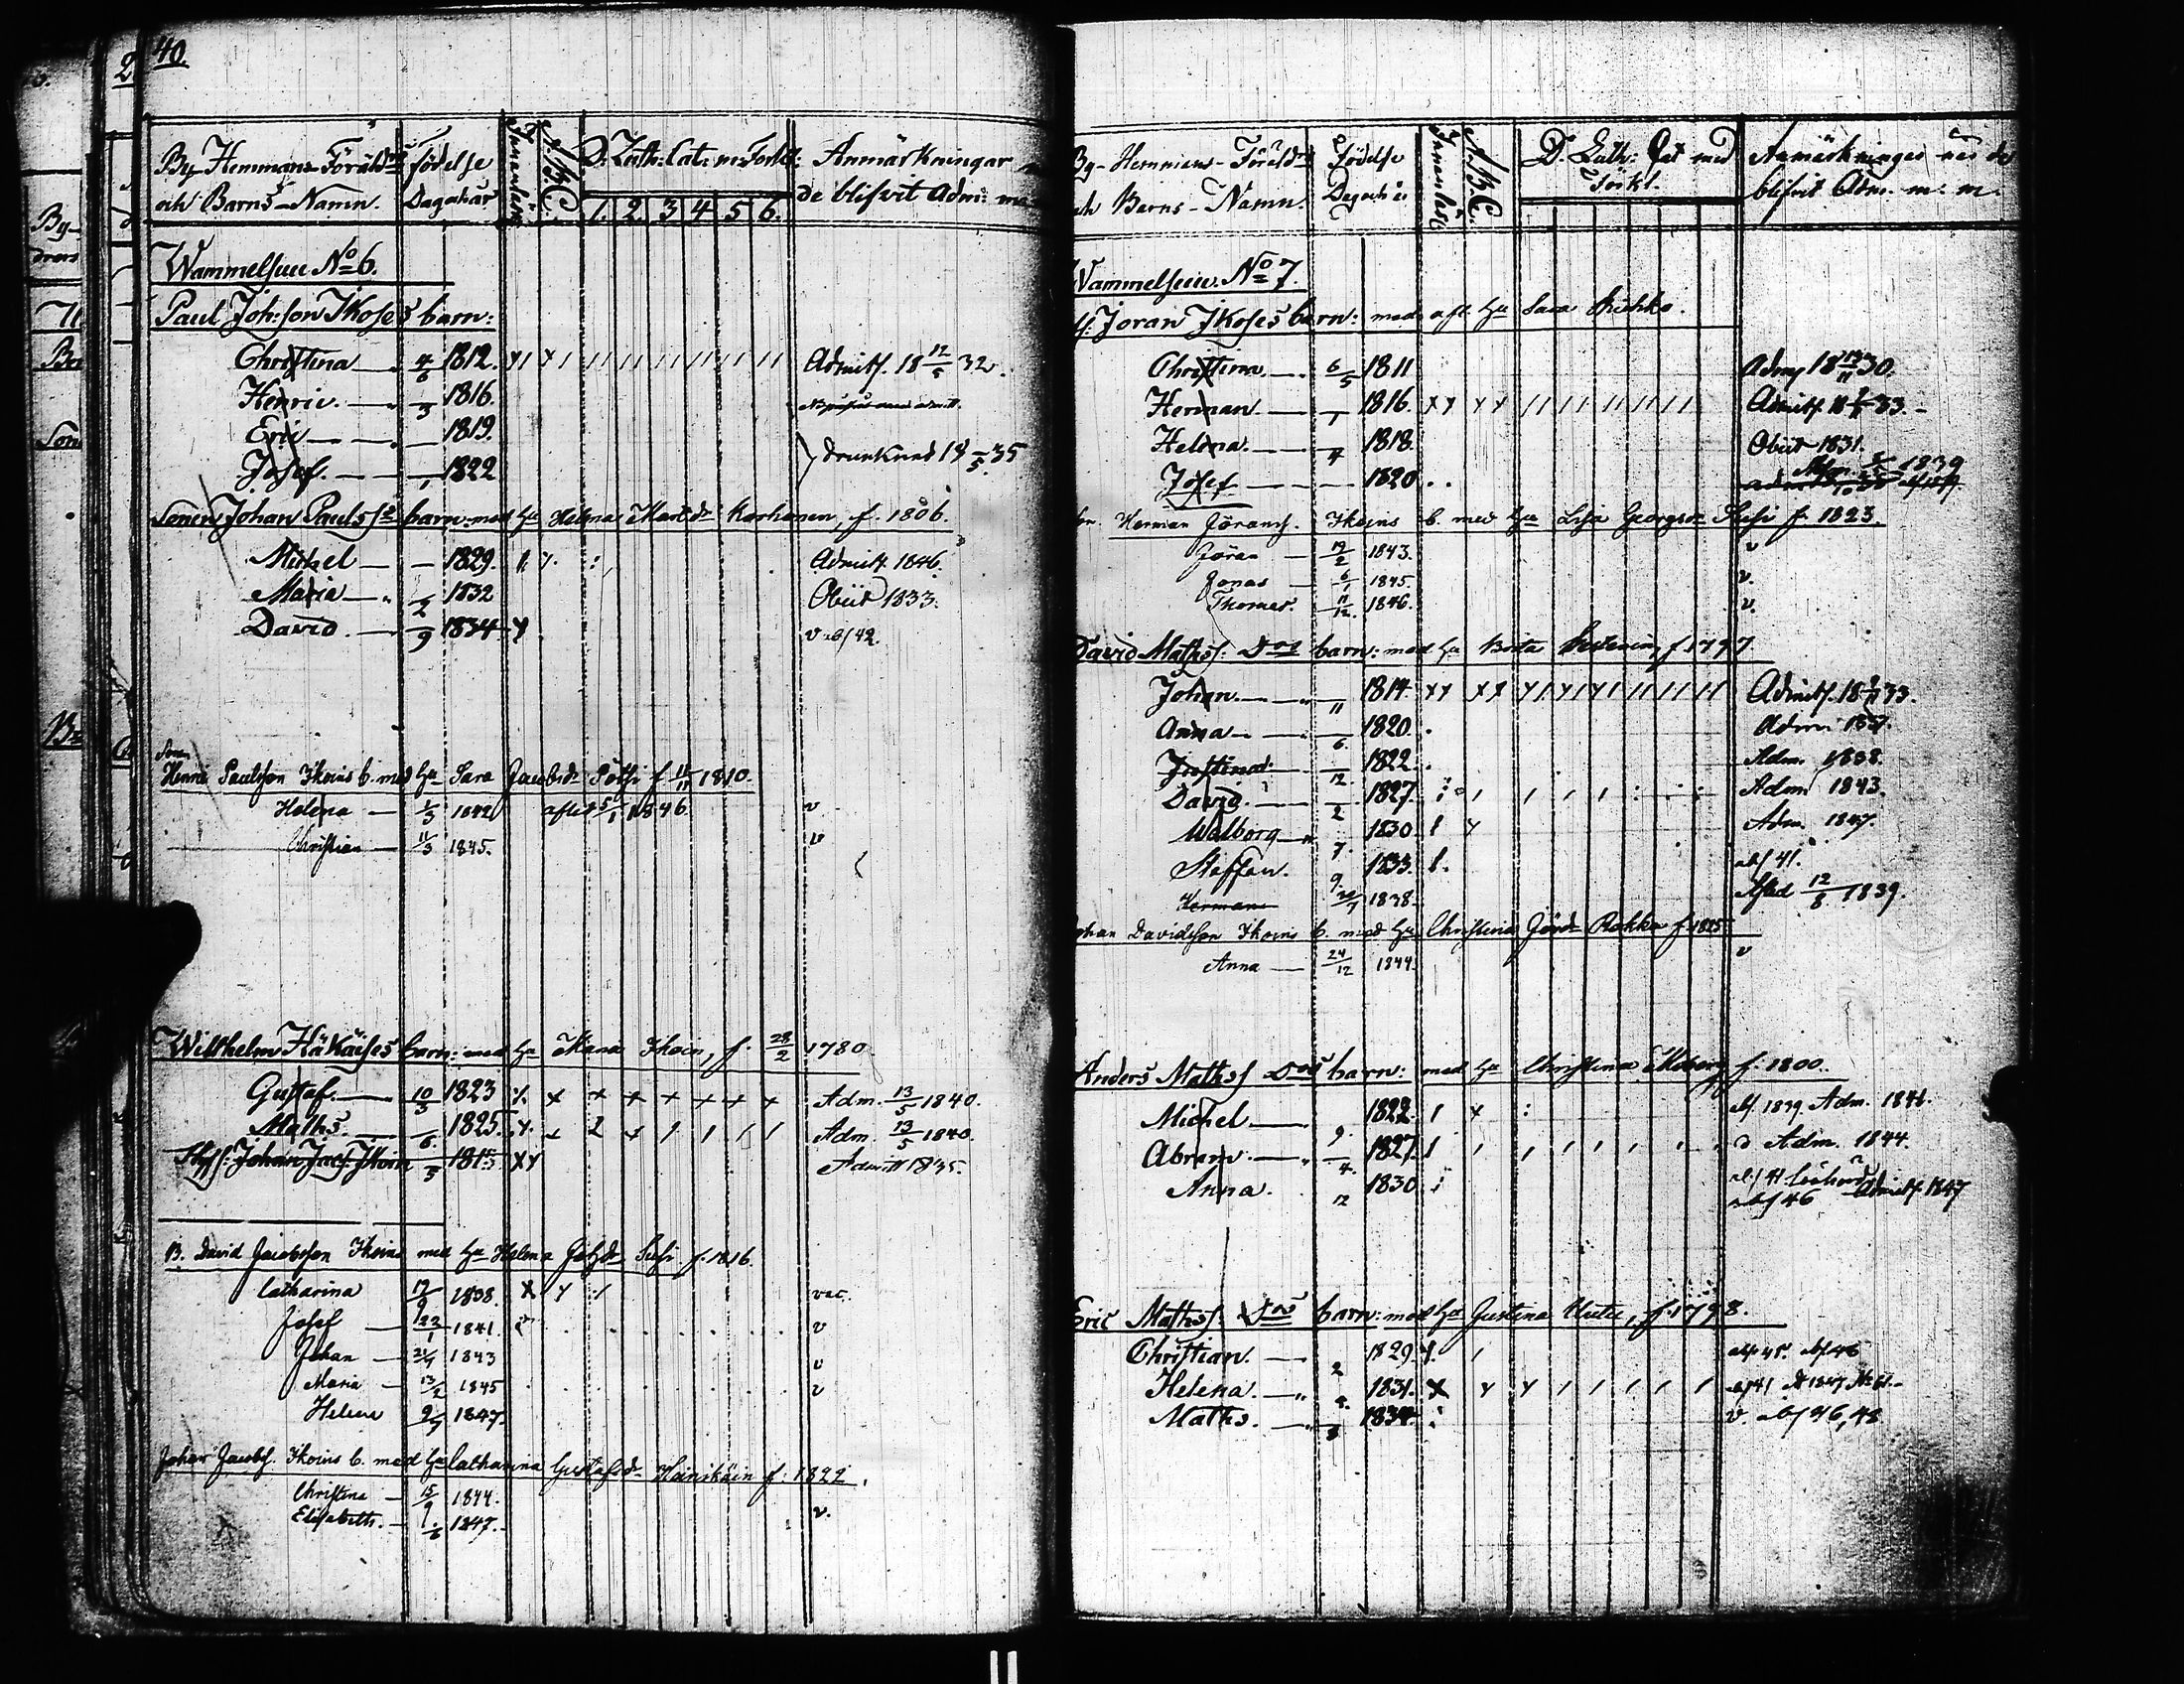 40.
By Hemmans-Föräldr
och Barns-Namn.
Födelse
Dag och år
Innanläs
A.B.C.
D. Luth: Cat: m. Förkl:
1. 2. 3. 4. 5. 6.
Anmärkningar
de blifvit Adm: m.
Wammelsuu No 6.
Paul Joh:son Ikoses barn:
Christina 4/6 1812. Admitt. 18 12/5 32.
Henric. 3 1816.
Eric 1819.
Josef. 1 1822 drunknad 18 5 35
Sonen Johan Pauls barn med hu Helena Karhonen, f. 1806.
Michel 1829. Admitt. 1846.
Maria 2 1832 Obiit 1833.
David. 9 1834 v abs 42.
Son
Henric Paulsson Ikoins b. med hu Sara Jacobsdr Potsi f. 11/11 1810.
Helena 1/3 1842 aflid 5/1 1846. v
Christian 11/3 1845. v
Willhelm Häkäises barn: med hu Maria Ikoin, f. 28/2 1780.
Gustaf. 10/3 1823 Adm. 13/5 1840.
Maths. 6. 1825. Adm. 13/5 1840.
Johan Jac: Ikoin 3 1815 Admitt 1835.
B. David Jacobsson Ikoins med hu Helena Susi f. 1816.
Catharina 17/9 1838. vac.
Josef 22/1 1841. v
Johan 21/7 1843 v
Maria 13/2 1845 v
Helena 9/7 1847.
Johan Jacobs. Ikoins b. med hu Catharina Gustafsdr Heinikäin f: 1822.
Christina 15/9 1844.
Elisabeth. 1/6 1847. v.
By-Hemmans-Föräldr
och Barns-Namn.
Födelse
Dag och år
Innanläs
A.B.C.
D. Luth: Cat med
Förkl.
Anmärkningar när de
blifvit Adm. m. m.
Wammelsuu. No 7.
Jöran Ikoses barn: med afl. hu Sara
Christina 6/5 1811 Adm 18 11 30.
Herman 1 1816. Admitt. 18 33.
Helena. 4 1818. Obiit 1831.
Josef 1820. 1839
Herman Jörans. Ikoins b. med hu Lisa Georgsdr Susi f. 1823.
Jöran 19/2 1843. v
Jonas 6/1 1845. v.
Thomas. 11/12 1846. v.
David Mathss: Dos barn: med hu Brita f. 1797.
Johan 11 1814. Admitt. 18 33.
Anna 6. 1820. Adm: 1837.
Justina 12 1822. Adm. 1838.
David. 2 1827. Adm 1843.
Walborg 7. 1830. Adm. 1847.
Staffan. 9. 1833. abs 41.
Herman 1838. Aflid 12/8 1839.
Johan Davidsson Ikoins b. med hu Christina Jördr Rokka f. 1825
Anna 24/12 1844. v
Anders Maths Dos barn: med hu Christina f. 1800.
Michel 9. 1822. abs. 1839. Adm. 1841.
Abram. 4. 1827. Adm. 1844.
Anna. 12 1830 abs 46 Admitt. 1847
Eric Mathss: Dos barn: med hu Justina Uutu, f. 1798.
Christian. 2 1829. abs 45. abs 46
Helena. 8. 1831. abs 41
Maths. 3 1834. v. abs 46, 48